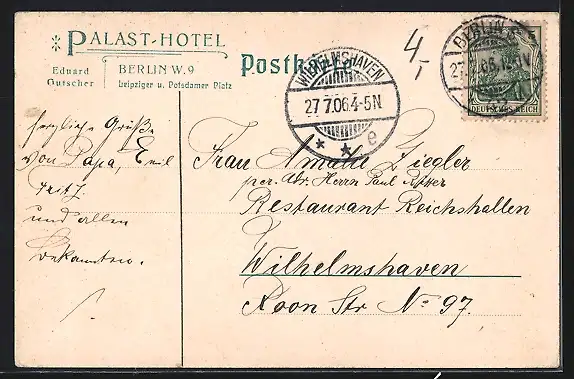 PALAST-HOTEL
Eduard
Gutscher
BERLIN W. 9
Leipziger u. Potsdamer Platz
Postkarte
4,-
WILHELMSHAVEN
27 7.06.4-5N
* * e
BERLIN
27
DEUTSCHES REICH
herzliche Grüße
von Papa, Emil
Fritz
und allen
Bekannten.
Frau Amalie Ziegler
per. Adr. Herrn Paul Ritter
Restaurant Reichshallen
Wilhelmshaven
Roon Str No 97.